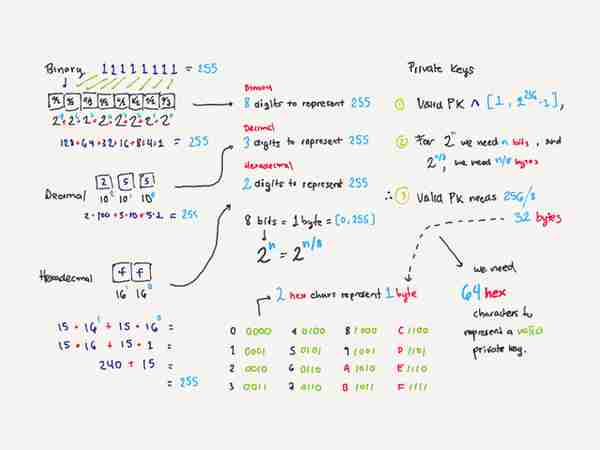 Binary 11111111 = 255
2⁷+2⁶+2⁵+2⁴+2³+2²+2¹+2⁰
128+64+32+16+8+4+2+1 = 255
Decimal
2 5 5
10² 10¹ 10⁰
2·100+5·10+5·1 = 255
Hexadecimal
f f
16¹ 16⁰
15 · 16¹ + 15 · 16⁰ =
15 · 16 + 15 · 1 =
240 + 15 =
= 255
Binary
8 digits to represent 255
Decimal
3 digits to represent 255
Hexadecimal
2 digits to represent 255
8 bits = 1 byte = [0,255]
2ⁿ = 2ⁿ/⁸
2 hex chars represent 1 byte
0 0000 4 0100 8 1000 C 1100
1 0001 5 0101 9 1001 D 1101
2 0010 6 0110 A 1010 E 1110
3 0011 7 0110 B 1011 F 1111
Private Keys
1 Valid PK ∧ [1, 2²⁵⁶-1],
2 For 2ⁿ we need n bits, and
2ⁿ/⁸, we need n/8 bytes
∴ 3 Valid PK needs 256/8
32 bytes
we need
64 hex
characters to
represent a valid
private key.